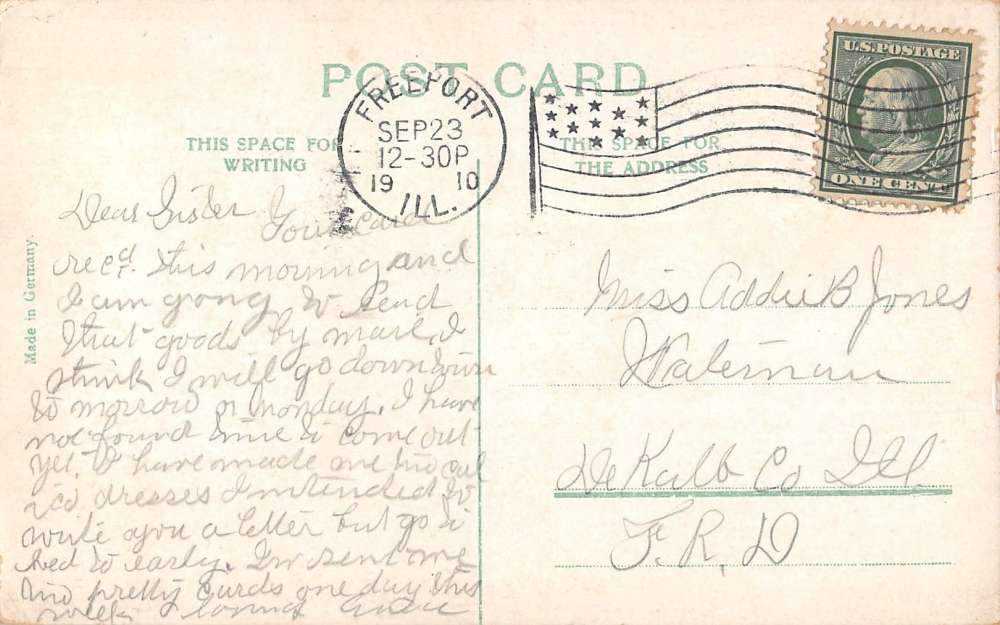 POST CARD
THIS SPACE FOR
WRITING
THIS SPACE FOR
THE ADDRESS
FREEPORT
SEP 23
12-30P
19 10
ILL.
U.S. POSTAGE
ONE CENT
Made in Germany.
Dear Sister Your Card
rec'd. this morning and
I am gong to send
that goods by mail, I
think I will go down town
to morrow or monday. I have
not found time to come out
yet. I have made me two cal
ico dresses I intended to
write you a letter but go to
bed to early. sent me
two pretty cards one day this
week
Miss Addie B Jones
Waterman
DeKalb Co Ill
F. R. D